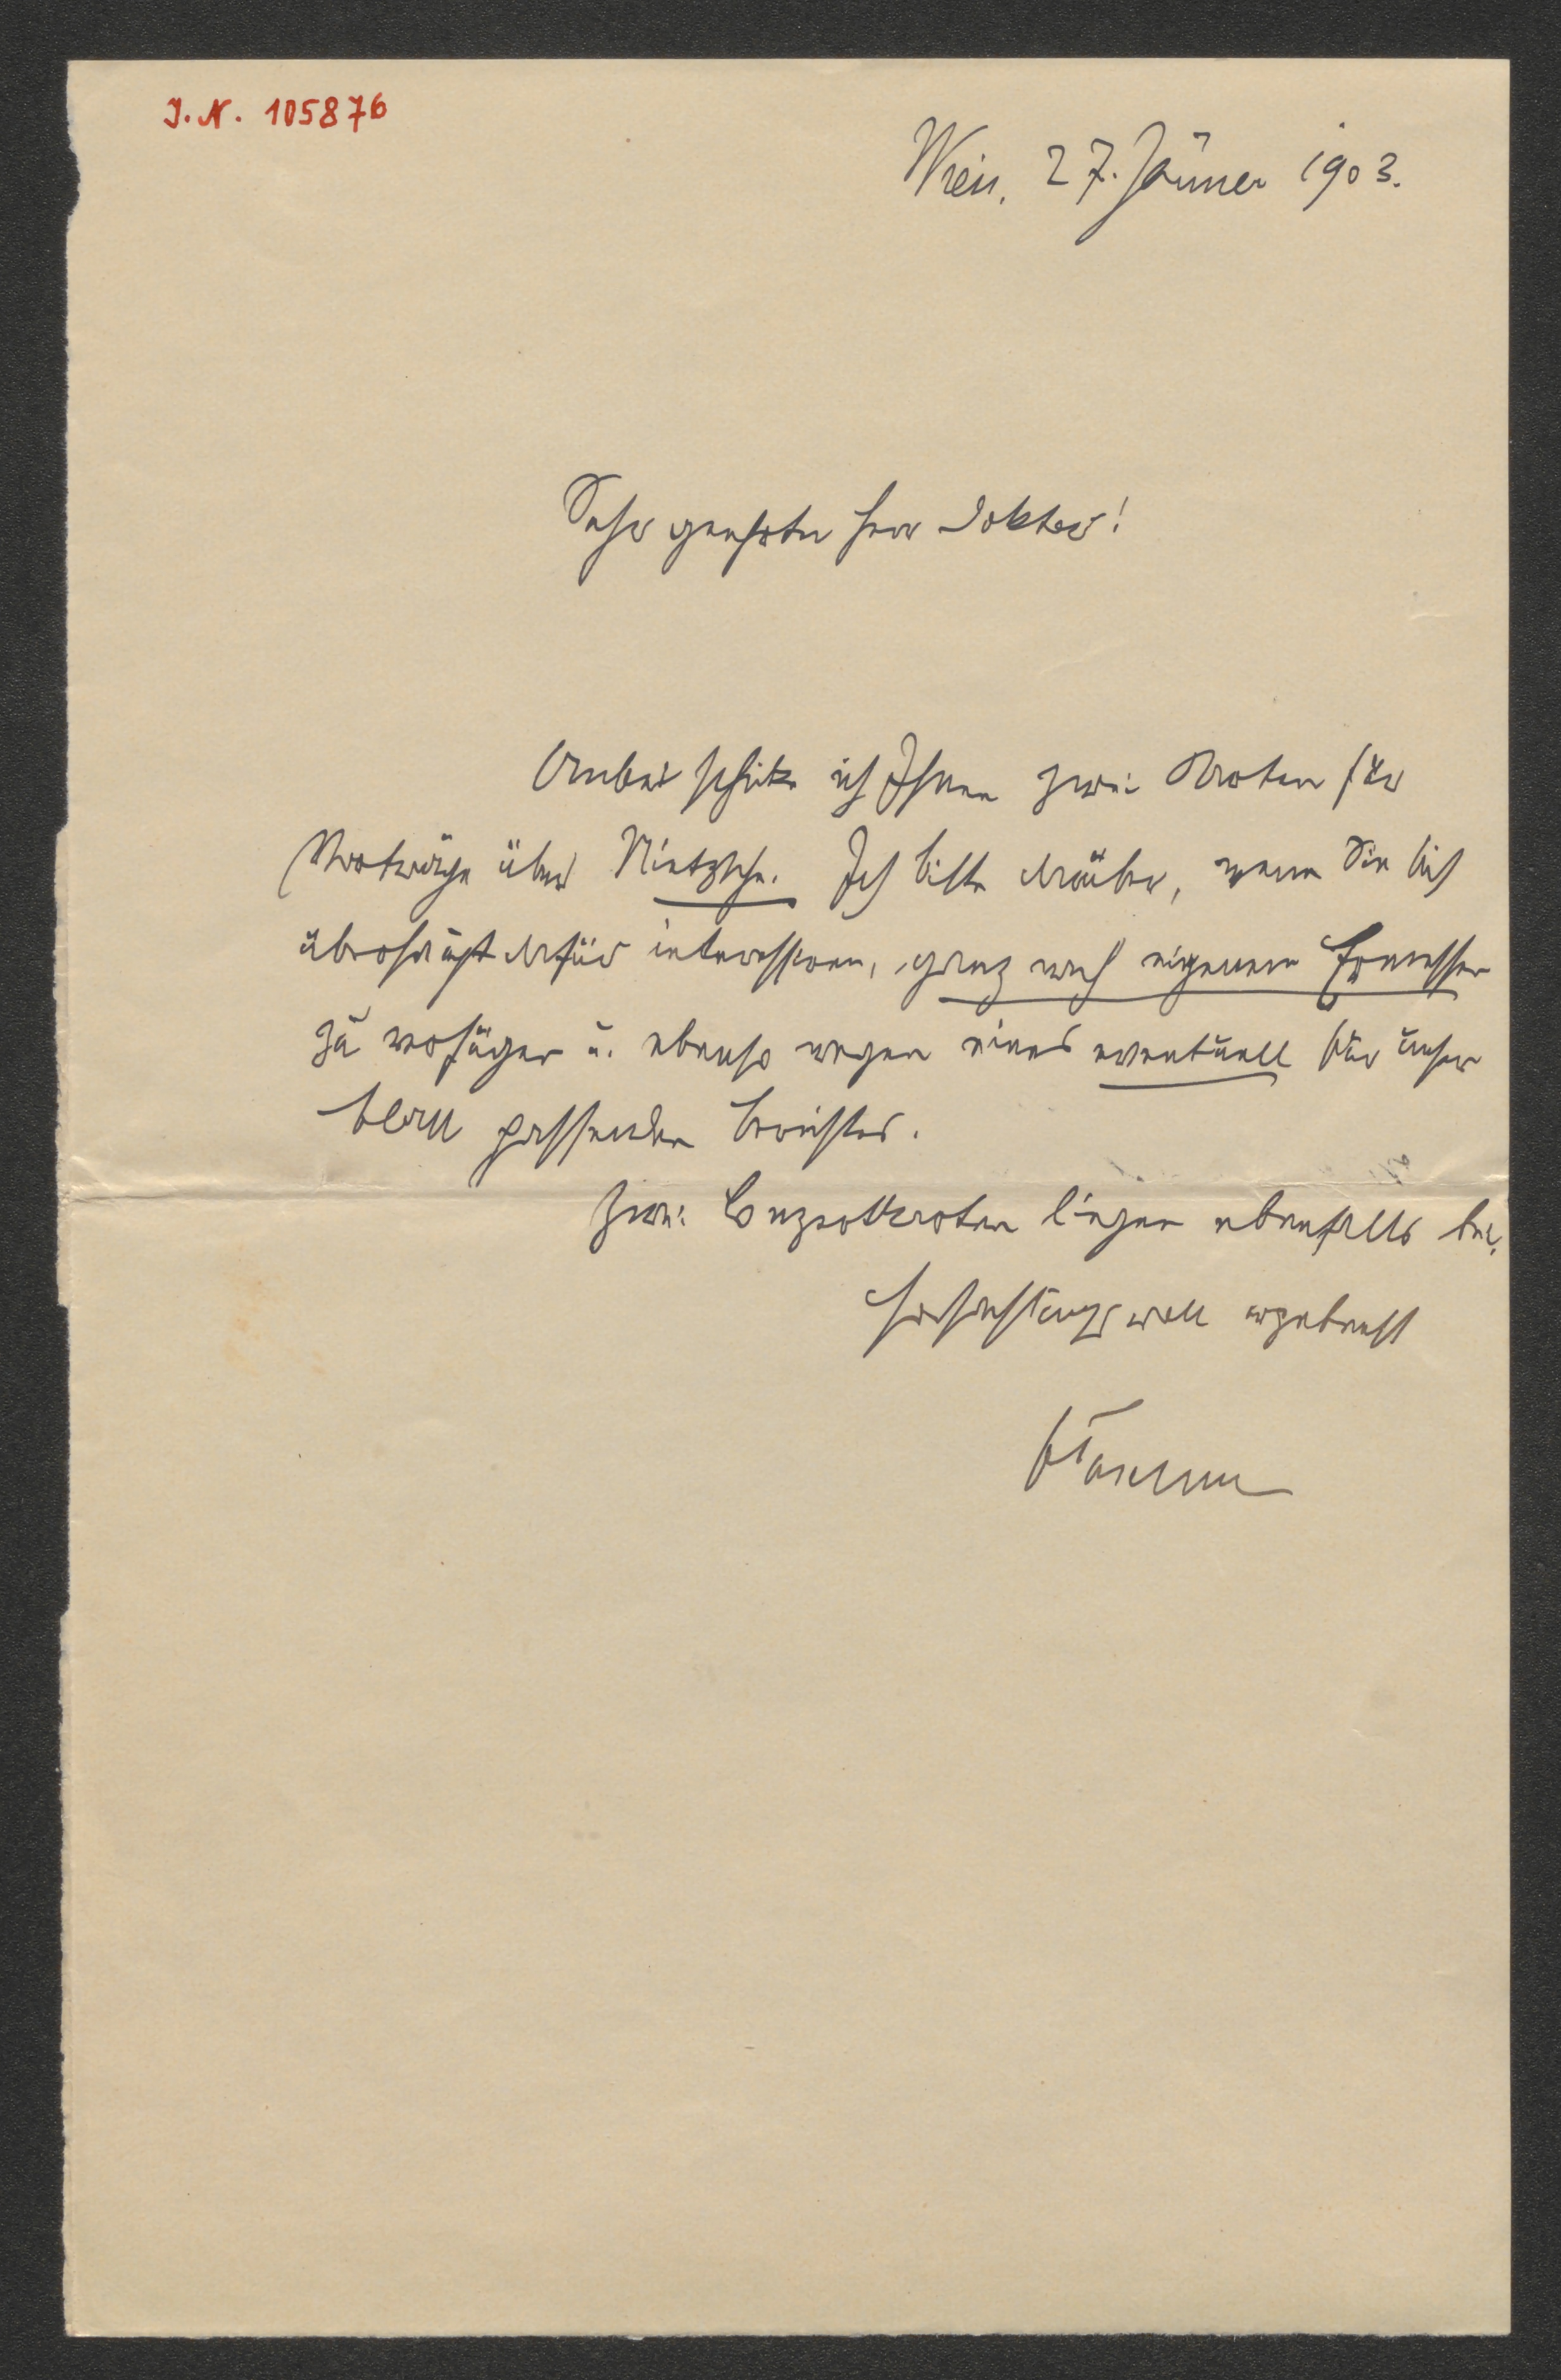 J. N. 105876
Wien, 27. Jänner 1903.
Sehr geehrter Herr Doktor!
Anbei schicke ich Ihnen zwei Karten für
Vorträge über Nietzsche. Ich bitte darüber, wenn Sie sich
überhaupt dafür interessieren, ganz nach eigenem Ermessen
zu verfügen u. ebenso wegen eines eventuell für unser
Blatt passenden Berichtes.
Zwei Conzertkarten liegen ebenfalls bei.
Hochachtungsvoll ergebenst